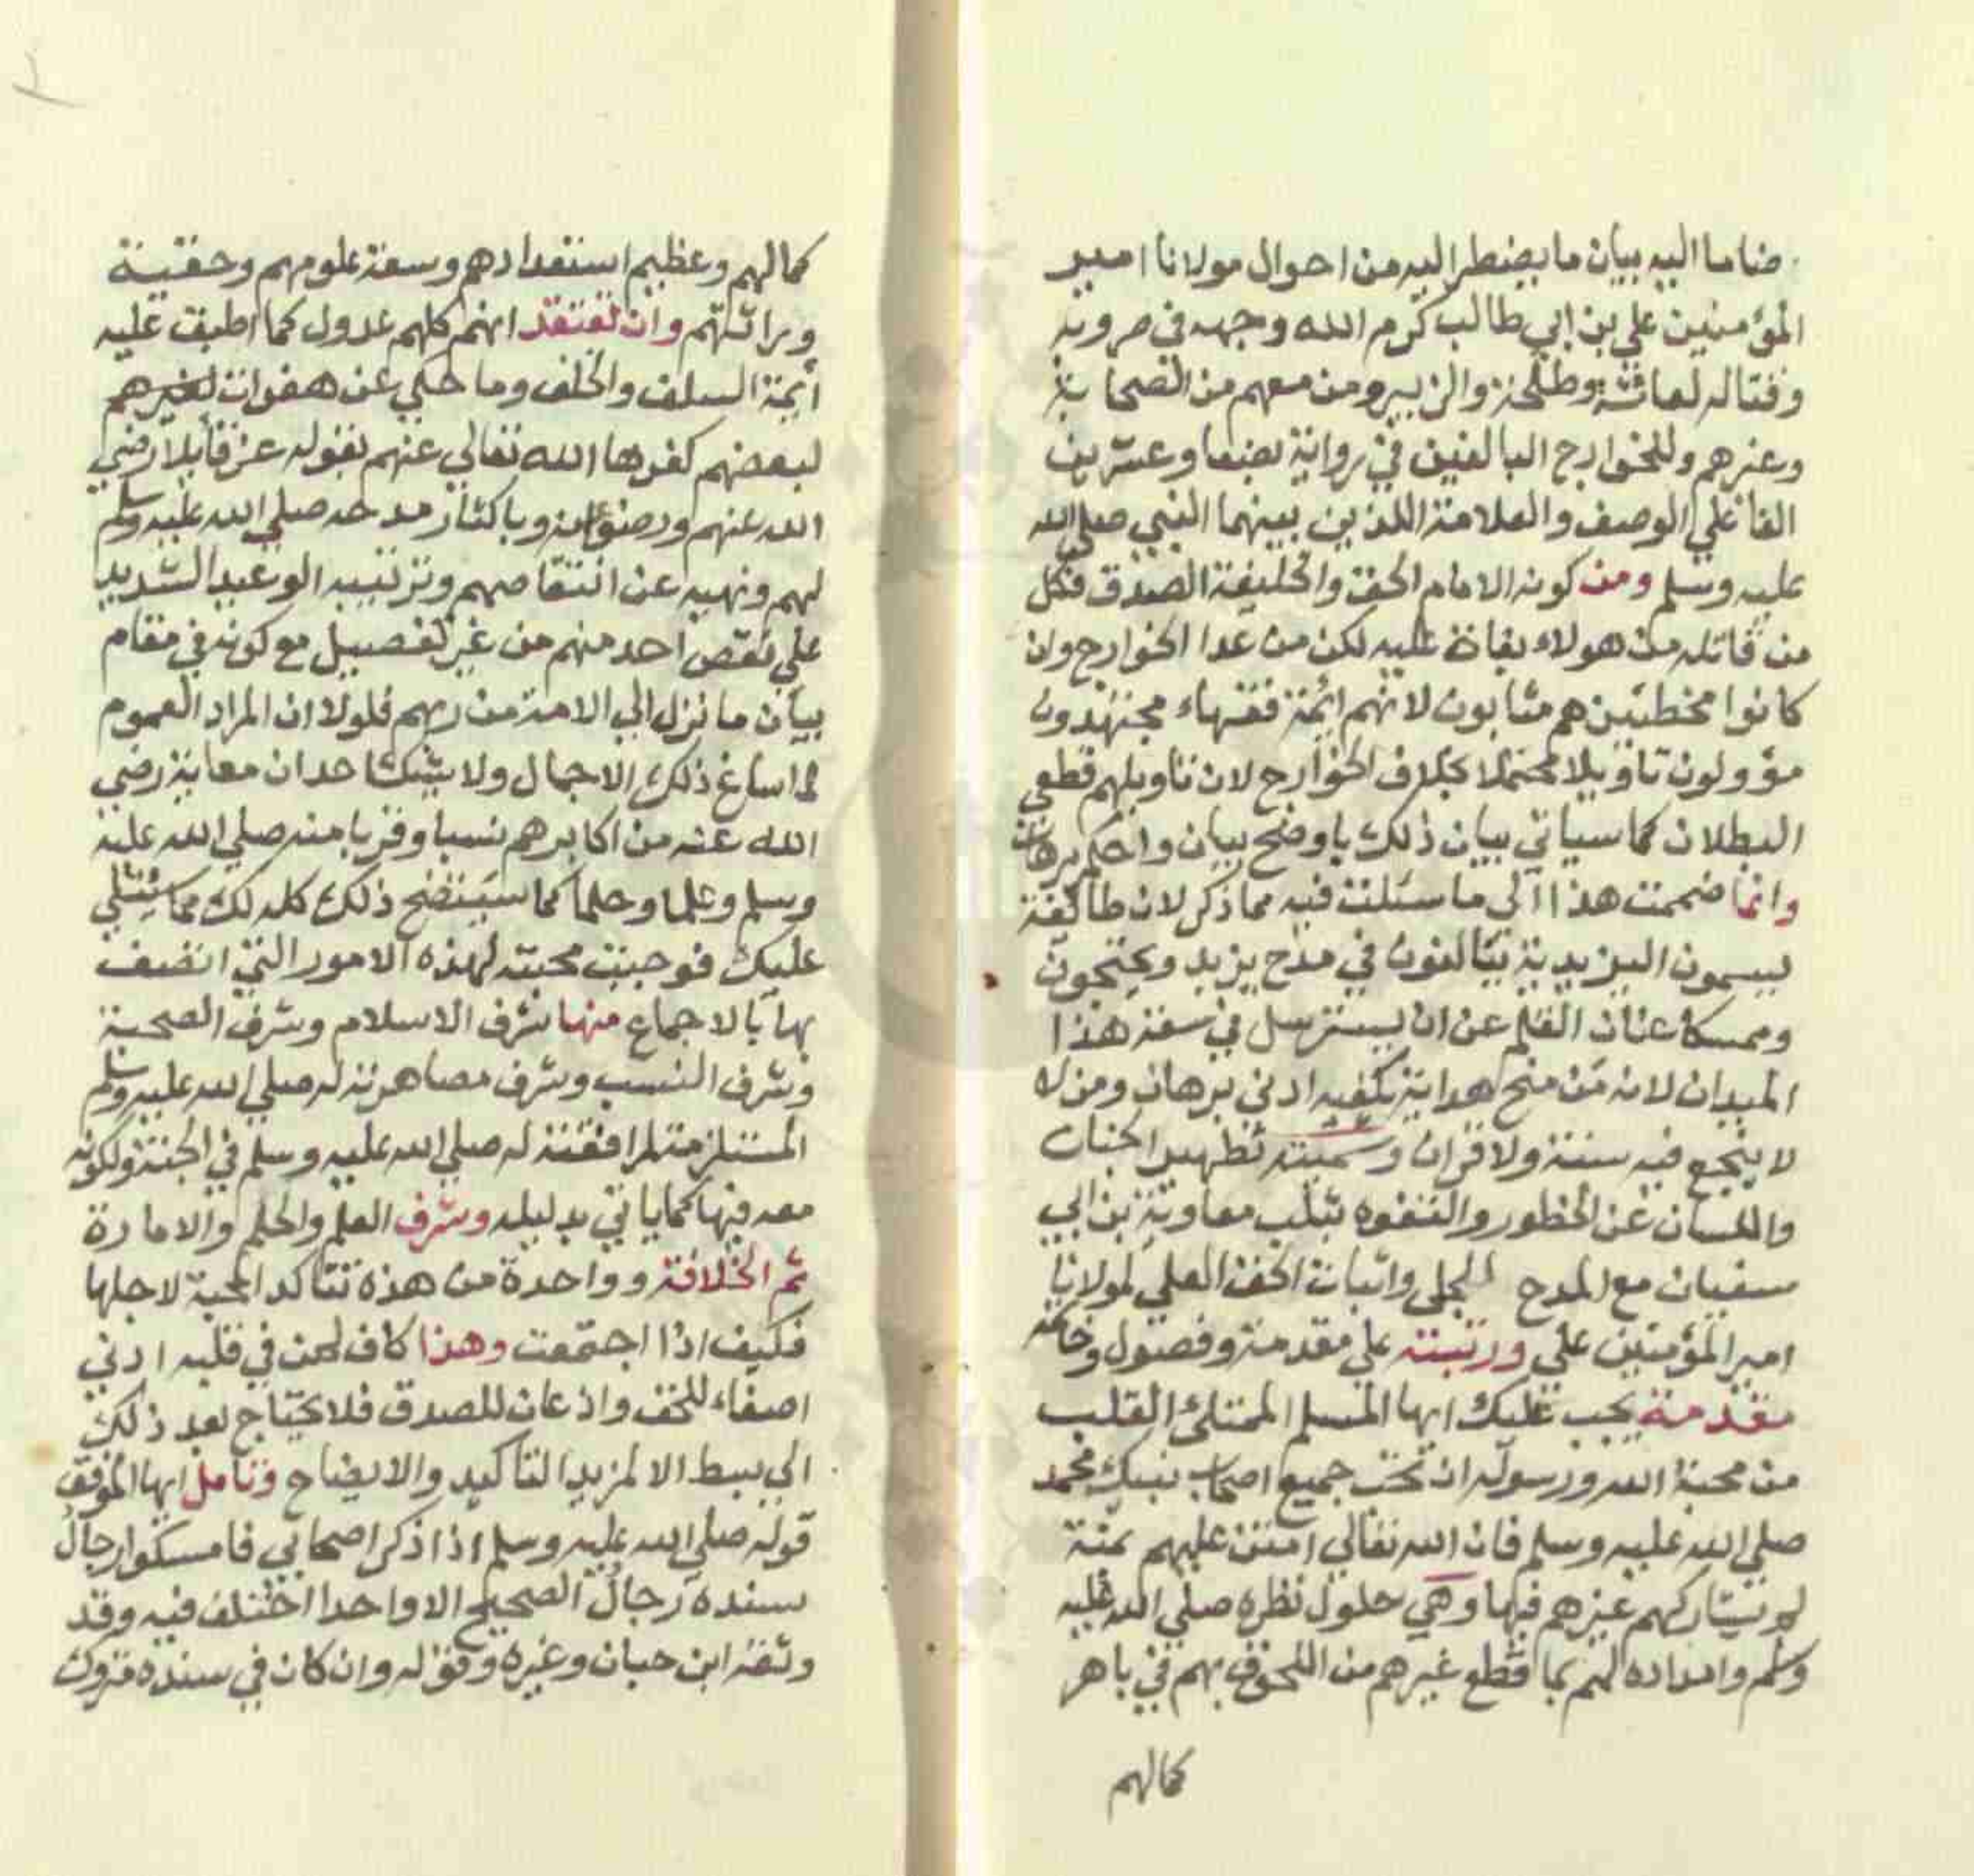 ضاما اليه بيان ما يضطر اليه من احوال مولانا امير
المؤمنين علي بن ابي طالب كرم الله وجهه في حروبه
وقتاله لعائشة وطلحة والزبير ومن معهم من الصحابة
وغيرهم وللخوارج البالغين في رواية بضعا وعشرين
الفا علي الوصف والعلامة اللذين بينهما النبي صلي الله
عليه وسلم ومن كونه الامام الحق والخليفة الصدق فكل
من قاتله من هولاء بغاة عليه لكن من عدا الخوارج وان
كانوا مخطئين هم مثابون لانهم ائمة فقهاء مجتهدون
مؤولون تاويلا محتملا بخلاف الخوارج لان تاويلهم قطعي
البطلان كما سياتي بيان ذلك باوضح بيان واحكم برهان
وانما ضممت هذا الي ما سئلت فيه مما ذكر لان طائفة
يسمون اليزيدية يبالغون في مدح يزيد ويحتجون
وممسكا عنان القلم عن ان يسترسل في سعة هذا
الميدان لانه من منح هداية يكفيه ادني برهان ومن لا
لا ينجع فيه سنة ولا قران وسميته تطهير الجنان
واللسان عن الخطور والتفوه بثلب معاوية بن ابي
سفيان مع المدح الجلي واثبات الحق العلي لمولانا
امير المؤمنين علي ورتبته علي مقدمة وفصول وخاتمة
مقدمة يجب عليك ايها المسلم الممتلئ القلب
من محبة الله ورسوله ان تحب جميع اصحاب نبيك محمد
صلي الله عليه وسلم فان الله تعالي امتن عليهم بمنة
لم يشاركهم غيرهم فيها وهي حلول نظره صلي الله عليه
وسلم وامداده لهم بما قطع غيرهم من اللحوق بهم في باهر
كمالهم
كمالهم وعظيم استعدادهم وسعة علومهم وحقية
وراثتهم وان تعتقد انهم كلهم عدول كما اطبقت عليه
أئمة السلف والخلف وما حكي عن هفوات لغيرهم
لبعضهم كفرها الله تعالي عنهم بقوله عز قايلا رضي
الله عنهم ورضوا عنه وباكثار مدحه صلي الله عليه وسلم
لهم ونهيه عن انتقاصهم وترتيبه الوعيد الشديد
علي نقص احد منهم من غير تفصيل مع كونه في مقام
بيان ما نزل الي الامة من ربهم فلولا ان المراد العموم
لما ساغ ذلك الاجمال ولا يشك احد ان معاية رضي
الله عنه من اكابرهم نسبا وقربا منه صلي الله عليه
وسلم وعلما وحلما كما سيتضح ذلك كله لك مما سيتلي
عليك فوجبت محبته لهذه الامور التي اتصف
بها بالاجماع منها شرف الاسلام وشرف الصحبة
وشرف النسب وشرف مصاهرته له صلي الله عليه وسلم
المستلزمة لمرافقته له صلي الله عليه وسلم في الجنة ولكونه
معه فيها كما ياتي بدليله وشرف العلم والحلم والامارة
ثم الخلافة وواحدة من هذه تتاكد المحبة لاجلها
فكيف اذا اجتمعت وهذا كاف لمن في قلبه ادني
اصغاء للحق واذعان للصدق فلا يحتاج بعد ذلك
الي بسط الا لمزيد التاكيد والايضاح وتامل ايها الموفق
قوله صلي الله عليه وسلم اذا ذكر اصحابي فامسكوا رجال
سنده رجال الصحيح الا واحدا اختلف فيه وقد
وثقه ابن حبان وغيره وقوله وان كان في سنده متروك